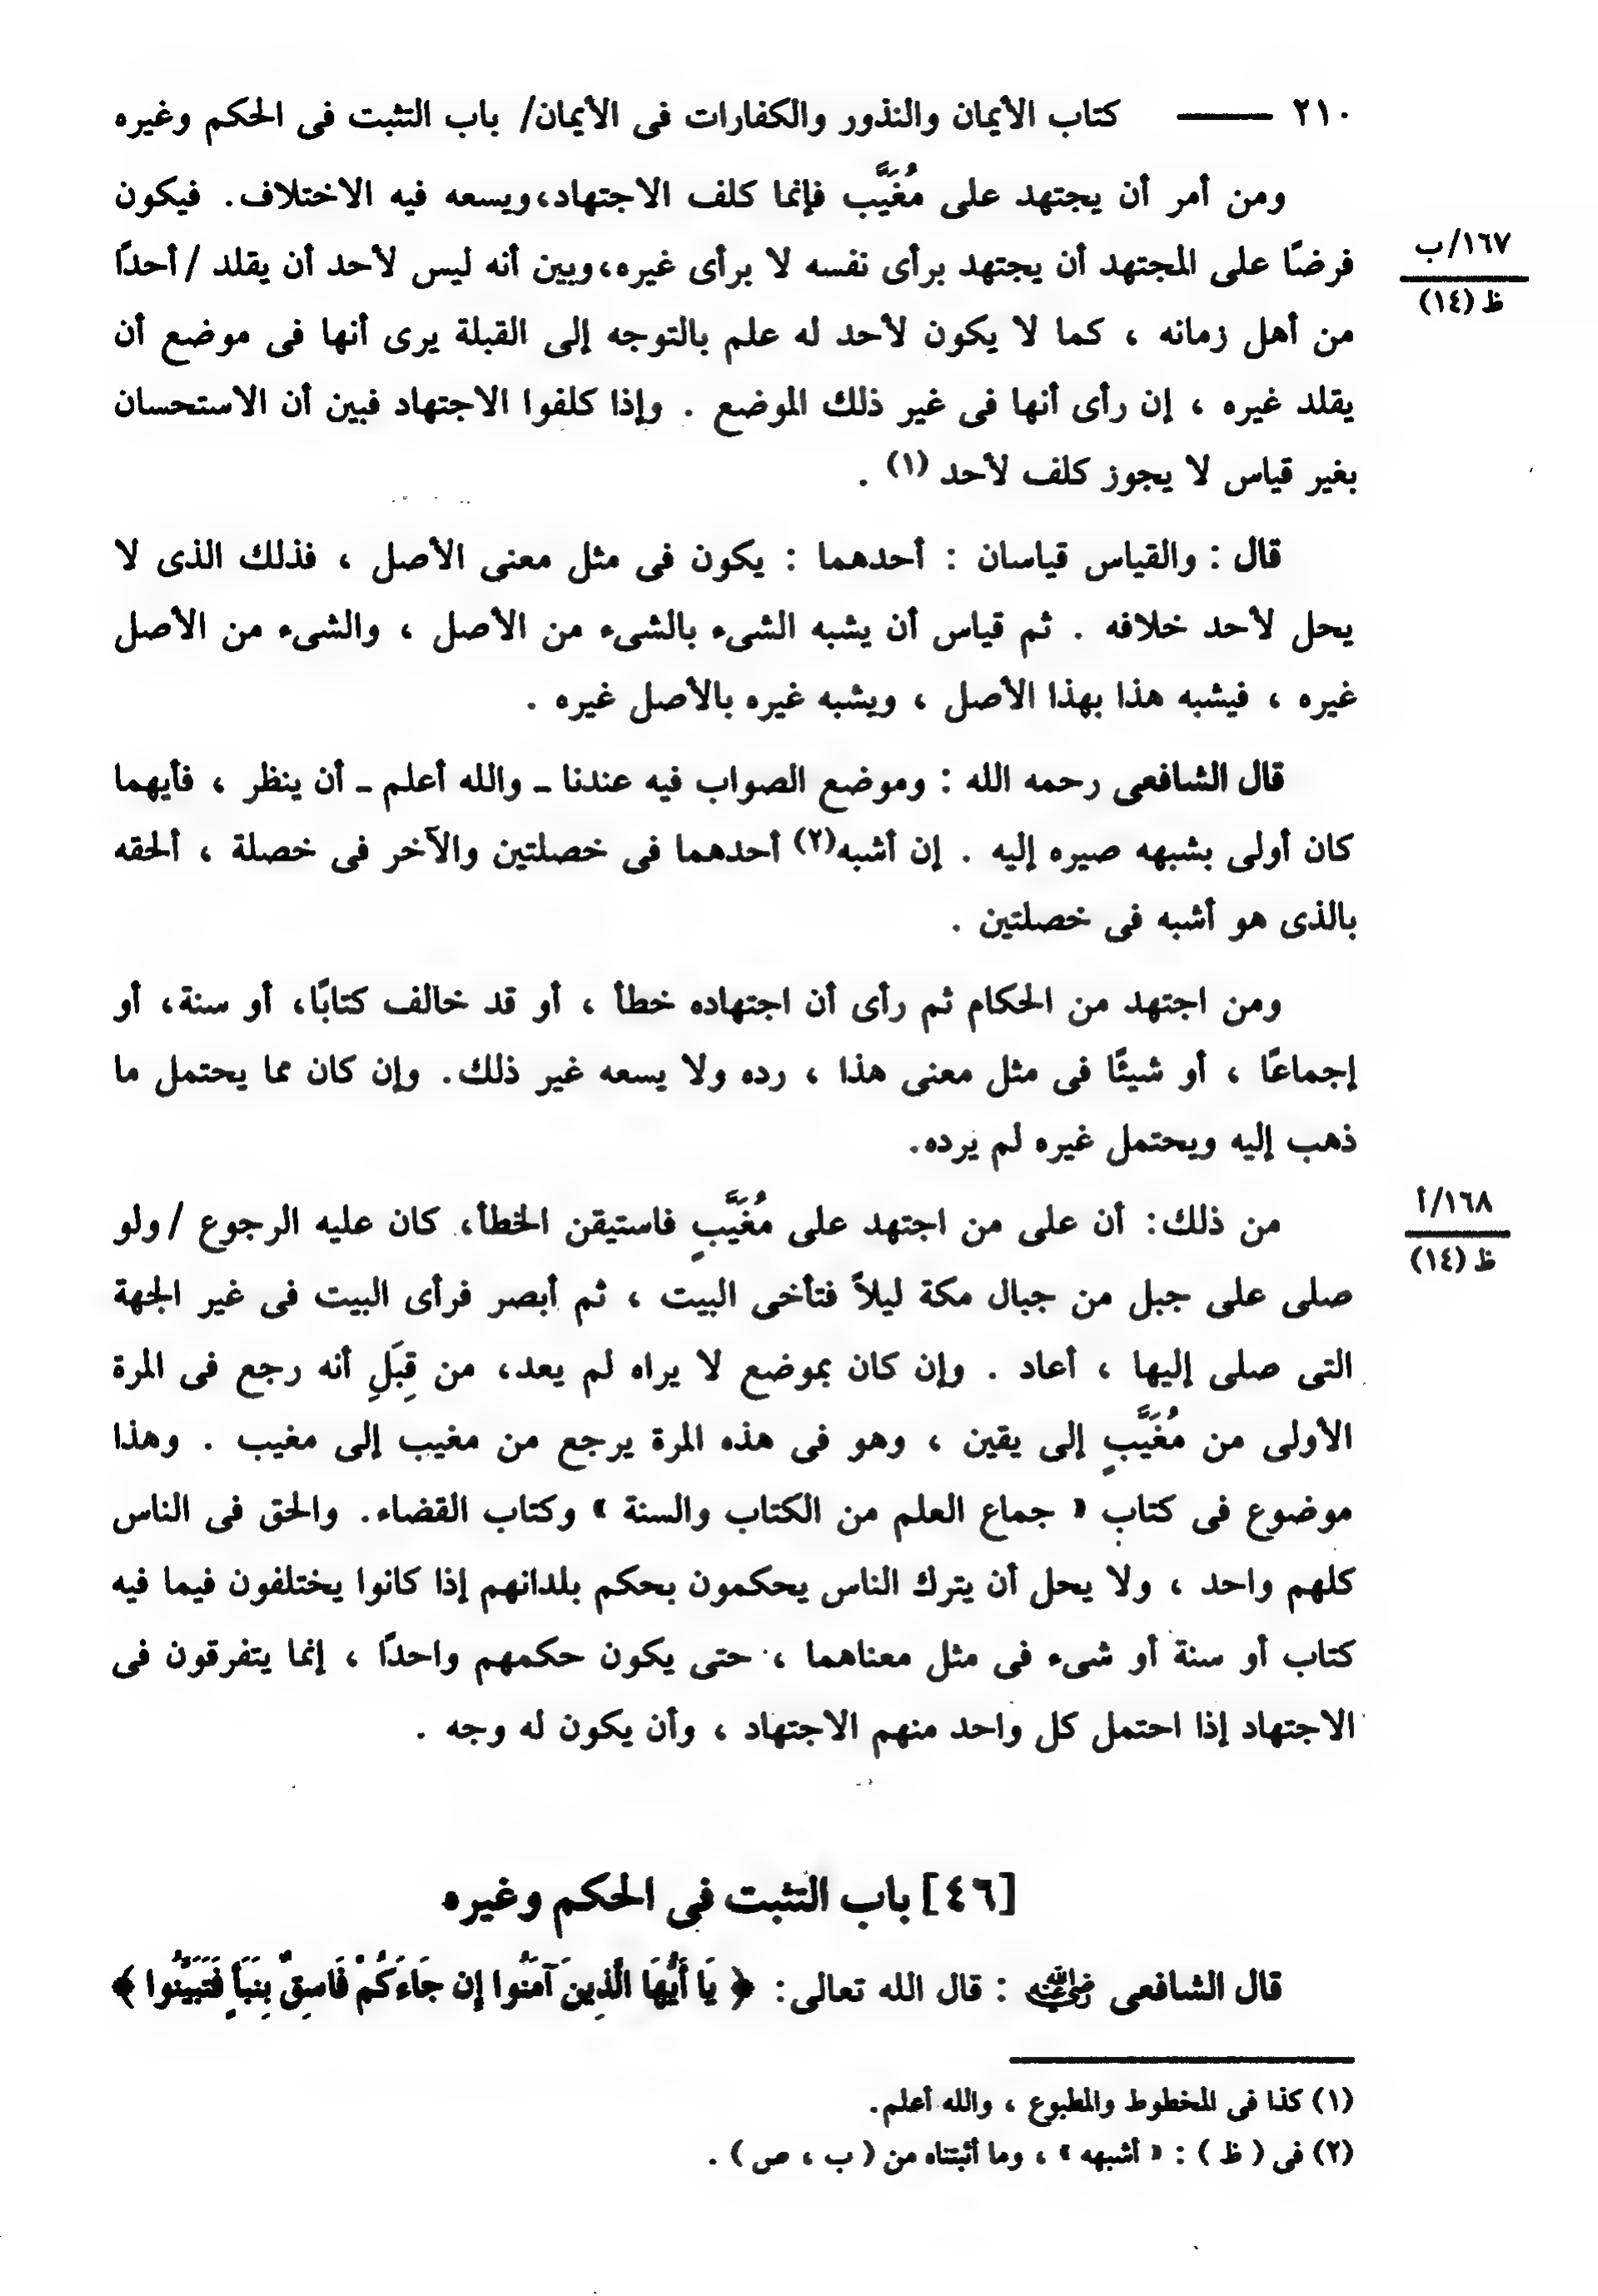 ٢١٠ ــــــ كتاب الأيمان والنذور والكفارات فى الأيمان/ باب التثبت فى الحكم وغيره
ومن أمر أن يجتهد على مُغَيَّب فإنما كلف الاجتهاد، ويسعه فيه الاختلاف. فيكون
١٦٧/ب
فرضًا على المجتهد أن يجتهد برأى نفسه لا برأى غيره، وبين أنه ليس لأحد أن يقلد / أحدًا
ظ (١٤)
من أهل زمانه ، كما لا يكون لأحد له علم بالتوجه إلى القبلة يرى أنها فى موضع أن
يقلد غيره ، إن رأى أنها فى غير ذلك الموضع . وإذا كلفوا الاجتهاد فبين أن الاستحسان
بغير قياس لا يجوز كلف لأحد (١) .
قال : والقياس قياسان : أحدهما : يكون فى مثل معنى الأصل ، فذلك الذى لا
يحل لأحد خلافه . ثم قياس أن يشبه الشىء بالشىء من الأصل ، والشىء من الأصل
غيره ، فيشبه هذا بهذا الأصل ، ويشبه غيره بالأصل غيره .
قال الشافعى رحمه الله : وموضع الصواب فيه عندنا ـ والله أعلم ـ أن ينظر ، فأيهما
كان أولى بشبهه صيره إليه . إن أشبه(٢) أحدهما فى خصلتين والآخر فى خصلة ، ألحقه
بالذى هو أشبه فى خصلتين .
ومن اجتهد من الحكام ثم رأى أن اجتهاده خطأ ، أو قد خالف كتابًا، أو سنة، أو
إجماعًا ، أو شيئًا فى مثل معنى هذا ، رده ولا يسعه غير ذلك. وإن كان مما يحتمل ما
ذهب إليه ويحتمل غيره لم يرده.
١٦٨/أ
من ذلك: أن على من اجتهد على مُغَيَّبٍ فاستيقن الخطأ، كان عليه الرجوع / ولو
ظ (١٤)
صلى على جبل من جبال مكة ليلاً فتأخى البيت ، ثم أبصر فرأى البيت فى غير الجهة
التى صلى إليها ، أعاد . وإن كان بموضع لا يراه لم يعد، من قِبَلِ أنه رجع فى المرة
الأولى من مُغَيَّبٍ إلى يقين ، وهو فى هذه المرة يرجع من مغيب إلى مغيب . وهذا
موضوع فى كتاب « جماع العلم من الكتاب والسنة » وكتاب القضاء. والحق فى الناس
كلهم واحد ، ولا يحل أن يترك الناس يحكمون بحكم بلدانهم إذا كانوا يختلفون فيما فيه
كتاب أو سنة أو شىء فى مثل معناهما ، حتى يكون حكمهم واحدًا ، إنما يتفرقون فى
الاجتهاد إذا احتمل كل واحد منهم الاجتهاد ، وأن يكون له وجه .
[٤٦] باب التثبت فى الحكم وغيره
قال الشافعى رضي الله عنه : قال الله تعالى: ﴿ يَا أَيُّهَا الَّذِينَ آمَنُوا إِن جَاءَكُمْ فَاسِقٌ بِنَبَأٍ فَتَبَيَّنُوا ﴾
(١) كذا فى المخطوط والمطبوع ، والله أعلم.
(٢) فى ( ظ ) : « أشبهه » ، وما أثبتناه من ( ب ، ص ) .